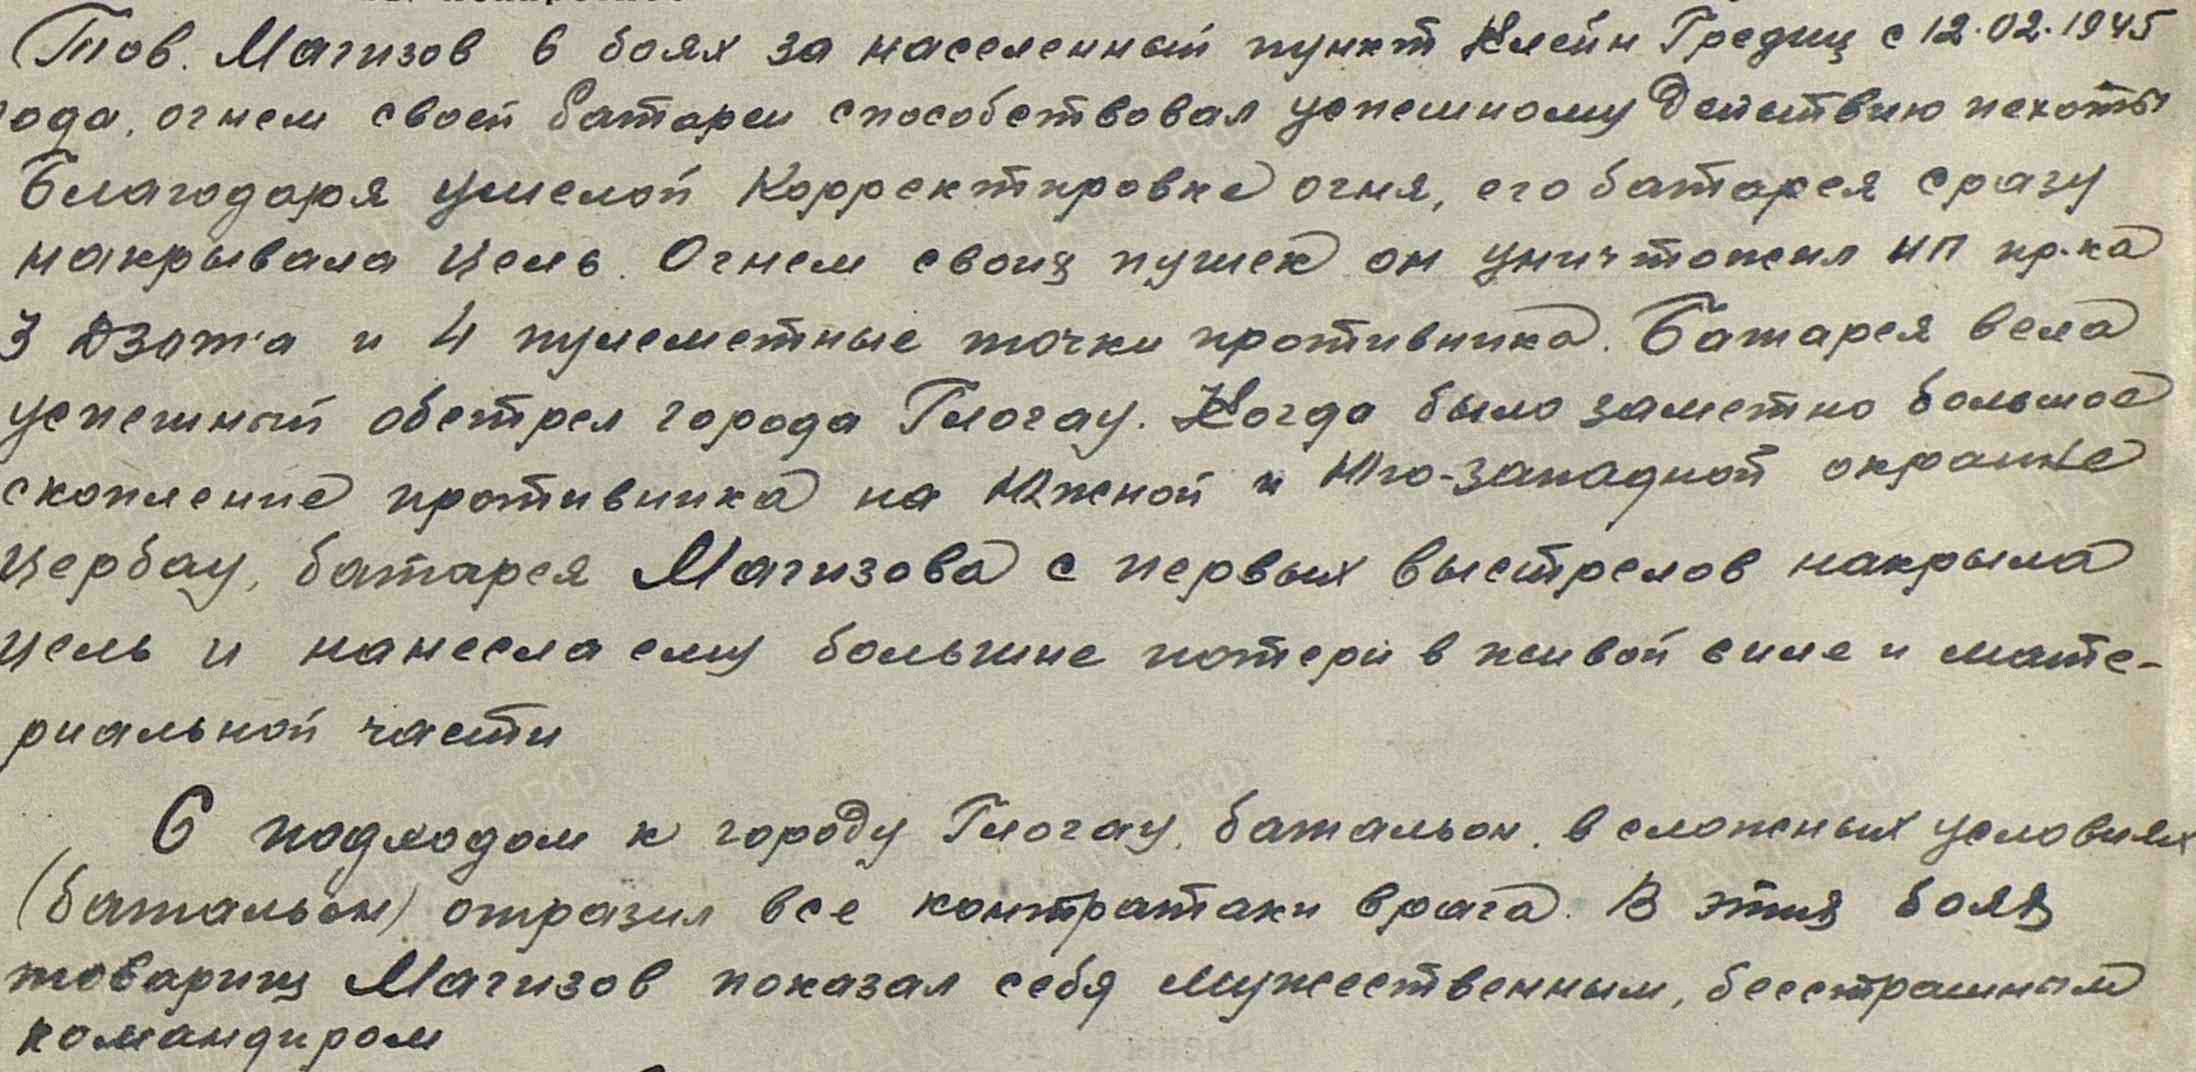 Тов. Магизов в боях за населенный пункт Клейн Гредиц с 12.02.1945
года, огнем своей батареи способствовал успешному действию пехоты
Благодаря умелой корректировке огня, его батарея сразу
накрывала цель. Огнем своих пушек он уничтожил НП пр-ка
3 дзота и 4 пулеметные точки противника. Батарея вела
успешный обстрел города Глогау. Когда было заметно большое
скопление противника на Южной и Юго-западной окраине
Цербау, батарея Магизова с первых выстрелов накрыла
цель и нанесла ему большие потери в живой силе и мате-
риальной части
С подходом к городу Глогау, батальон в сложных условиях
(батальон) отразил все контратаки врага. В этих боях
товарищ Магизов показал себя мужественным, бесстрашным
командиром